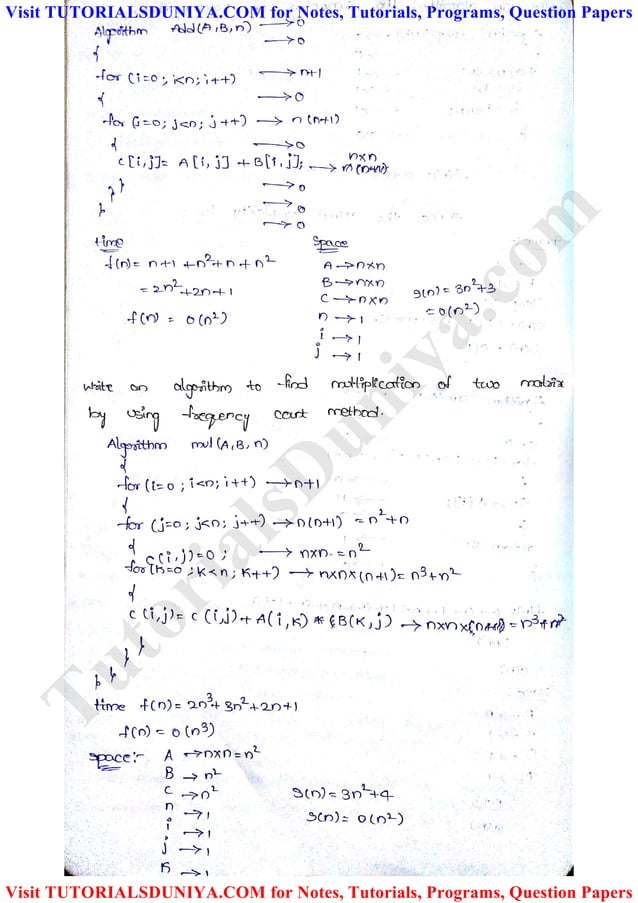 Visit TUTORIALSDUNIYA.COM for Notes, Tutorials, Programs, Question Papers
Algorithm Add(A,B,n) → 0
{ → 0
for (i=0; i<n; i++) → n+1
{ → 0
for (j=0; j<n; j++) → n(n+1)
{ → 0
C[i,j] = A[i,j] + B[i,j]; → n×n
} } → 0
→ 0
} → 0
time Space
f(n) = n+1+n²+n+n² A → n×n
= 2n²+2n+1 B → n×n s(n) = 3n²+3
C → n×n = O(n²)
f(n) = O(n²) n → 1
i → 1
j → 1
write an algorithm to find multiplication of two matrix
by using freqency cout method.
Algorithm mul(A,B,n)
{
for (i=0; i<n; i++) → n+1
{
for (j=0; j<n; j++) → n(n+1) = n²+n
{
C(i,j)=0; → n×n = n²
for(K=0; K<n; K++) → n×n×(n+1) = n³+n²
{
C(i,j) = C(i,j) + A(i,K) * B(K,j) → n×n×
} } } }
time f(n) = 2n³+3n²+2n+1
f(n) = O(n³)
Space:- A → n×n = n²
B → n²
C → n² s(n) = 3n²+4
n → 1 s(n) = O(n²)
i → 1
j → 1
K → 1
TutorialsDuniya.com
Visit TUTORIALSDUNIYA.COM for Notes, Tutorials, Programs, Question Papers